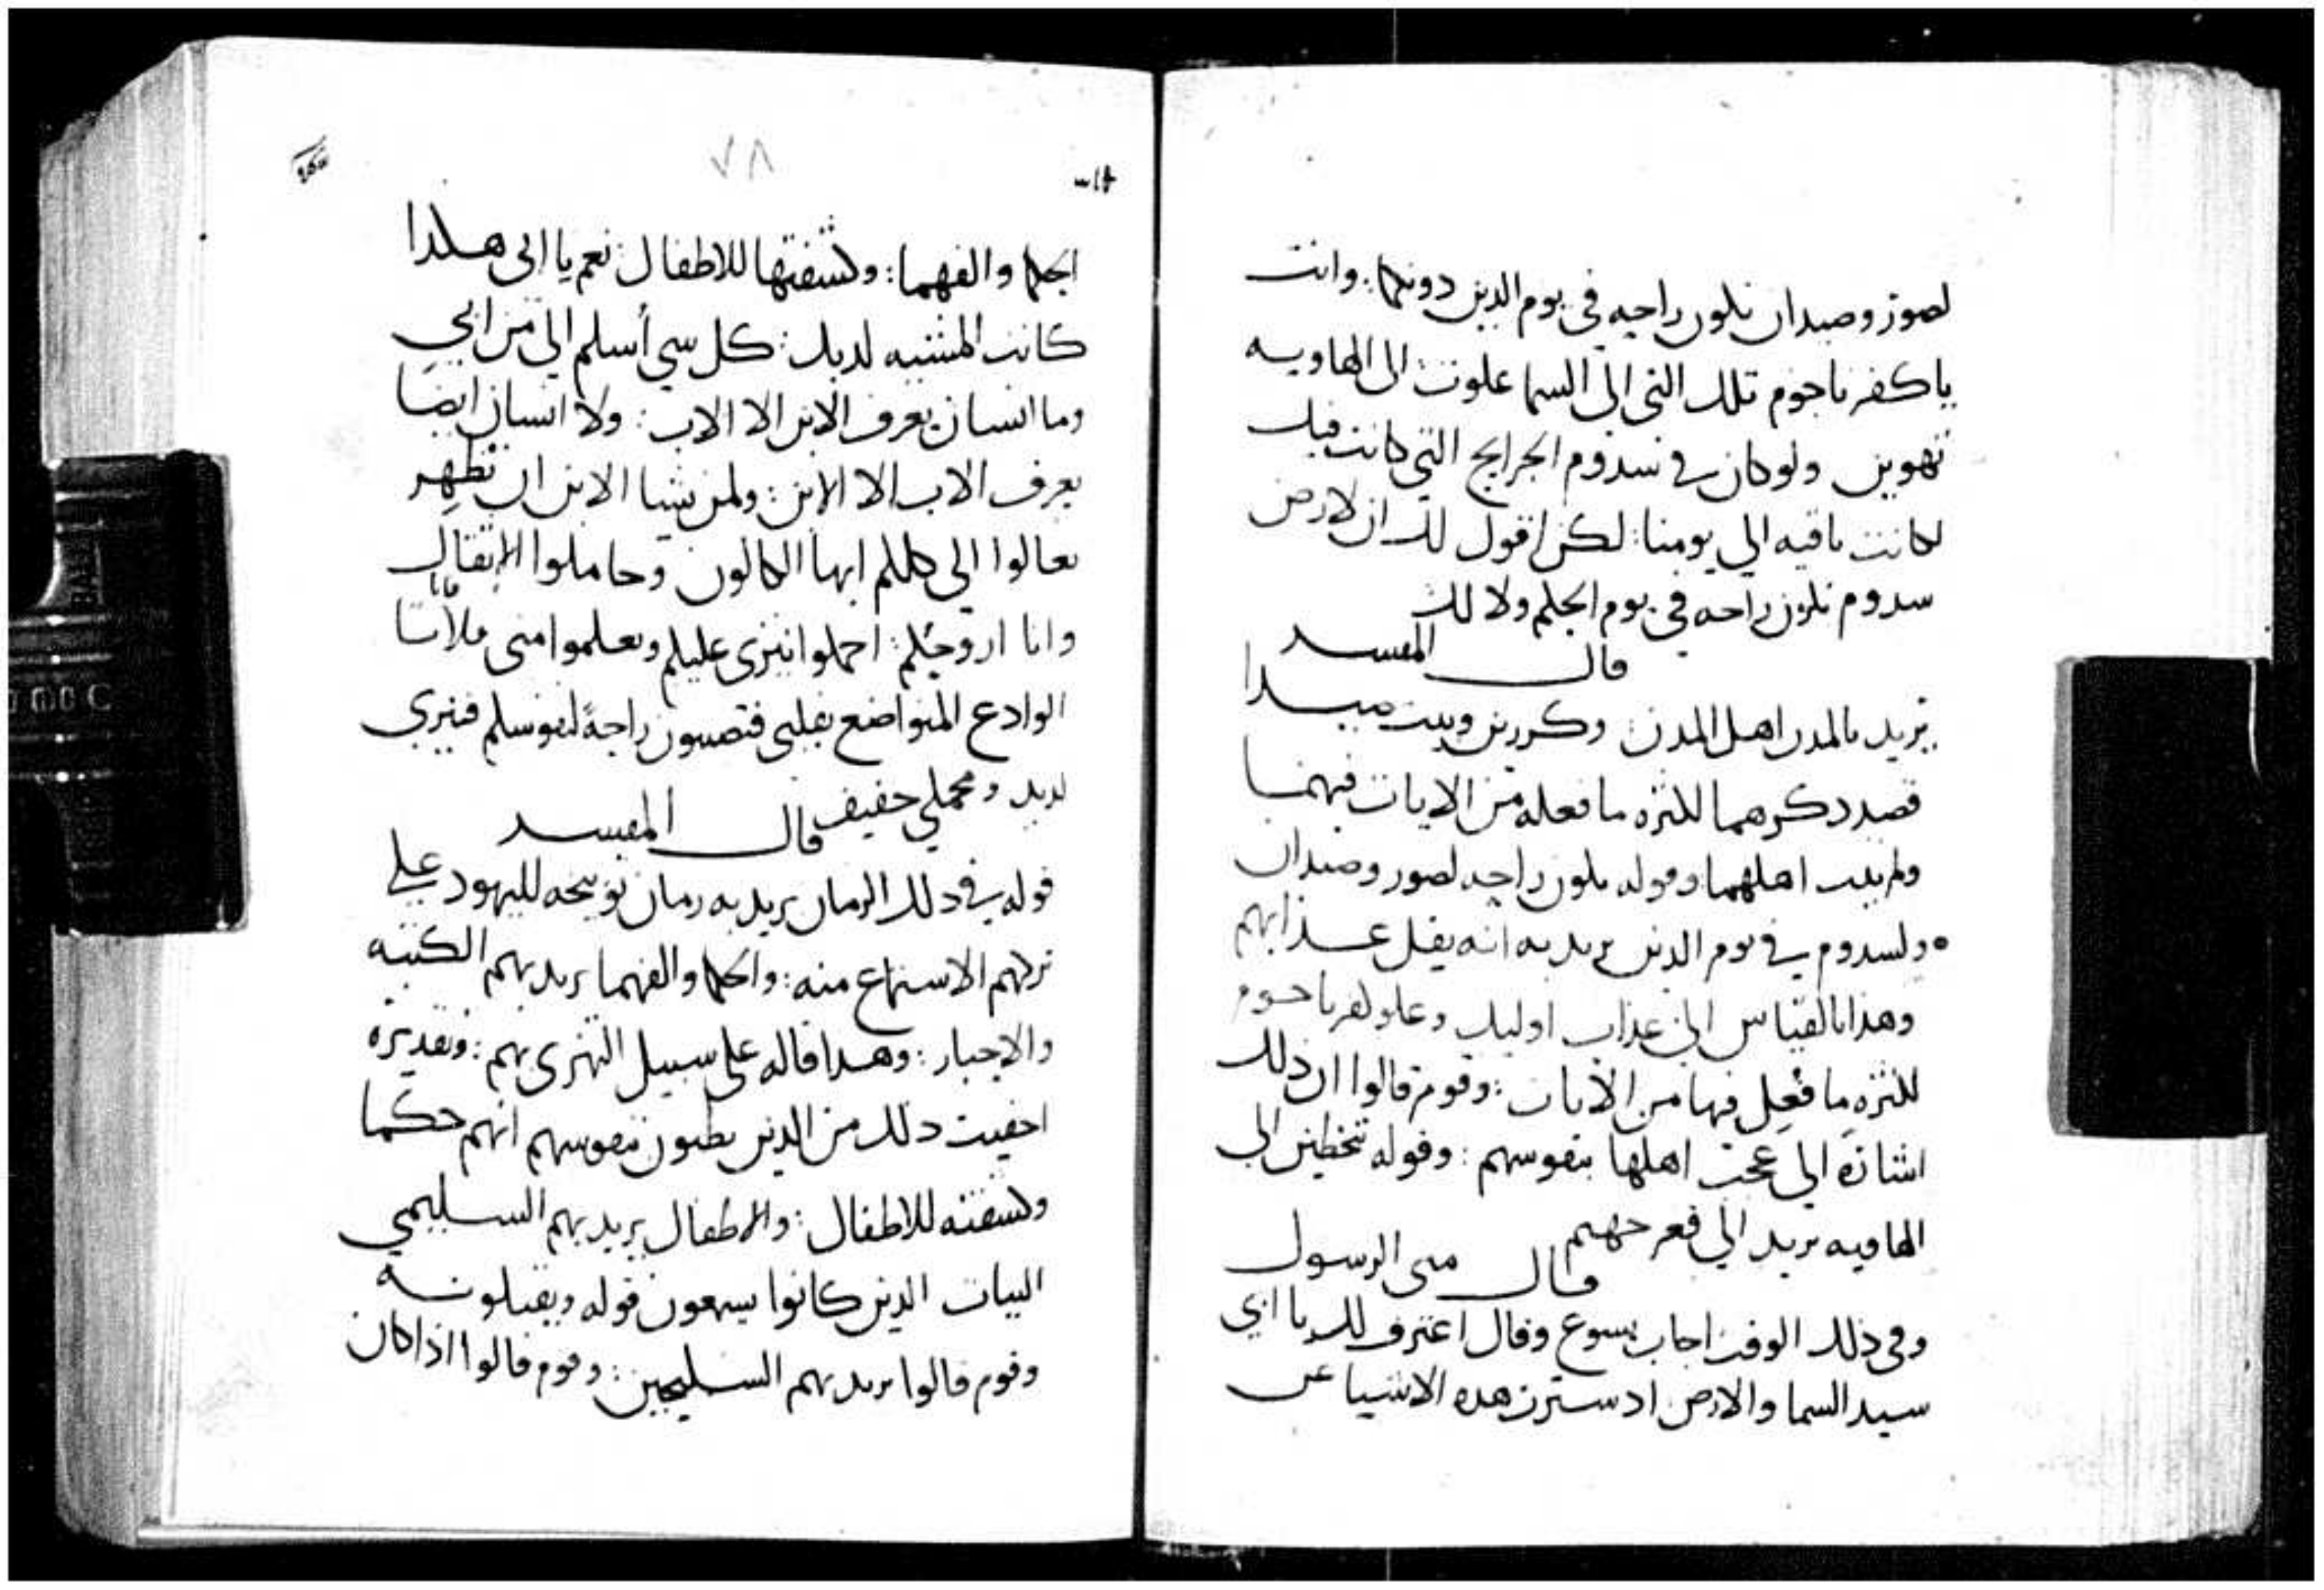 لصور وصيدان تكون راحه في يوم الدين دونكما: وانت
ياكفرناحوم تلك التي الى السما علوت: الى الهاويه
تهوين ولوكان في سدوم الجرايح التي كانت فيك
لكانت باقيه الي يومنا: لكن اقول لك ان لارض
سدوم تكون راحه في يوم الحكم ولا لك
قال المفسر
يريد بالمدن اهل المدن: وكررين وبيت صيدا
قصد ذكرهما لكثره ما فعله من الايات فيهما
ولم يتب اهلهما وقوله تكون راحه لصور وصيدان
ولسدوم في يوم الدين يريد به انه يقل عذابهم
وهذا بالقياس الي عذاب اوليك وعلو كفرناحوم
لكثره ما فُعِل فيها من الايات: وقوم قالوا ان ذلك
اشارة الي عجب اهلها بنفوسهم: وقوله تنحطين الي
الهاويه يريد الي قعر جهنم
قال متى الرسول
وفي ذلك الوقت اجاب يسوع وقال اعترف لك يا ابي
سيد السما والارض اذ سترت هذه الاشيا عن
٧٨
الحكما والفهما: وكشفتها للاطفال: نعم يا ابي هكذا
كانت المشييه لديك: كل شي أسلم الي من ابي
وما انسان يعرف الابن الا الاب: ولا انسان ايضا
يعرف الاب الا الابن: ولمن يشا الابن ان يظهر
تعالوا الي كلكم ايها الكالون وحاملوا الاثقال
وانا اروحكم: احملوا نيري عليكم وتعلموا مني فاني
الوادع المتواضع بقلبي فتصيبون راحةً لنفوسكم فنيري
لديد ومحملي خفيف قال المفسر
قوله في ذلك الزمان يريد به زمان توبيخه لليهود علي
تركهم الاستماع منه: والحكما والفهما يريد بهم الكتبه
والاحبار: وهذا قاله على سبيل التهزي بهم: وتقديره
اخفيت ذلك من الذين يظنون بنفوسهم انهم حكما
وكشفته للاطفال: والاطفال يريد بهم السليمي
النيات الذين كانوا يسمعون قوله ويقبلونه
وقوم قالوا يريد بهم السليحين: وقوم قالوا اذا كان